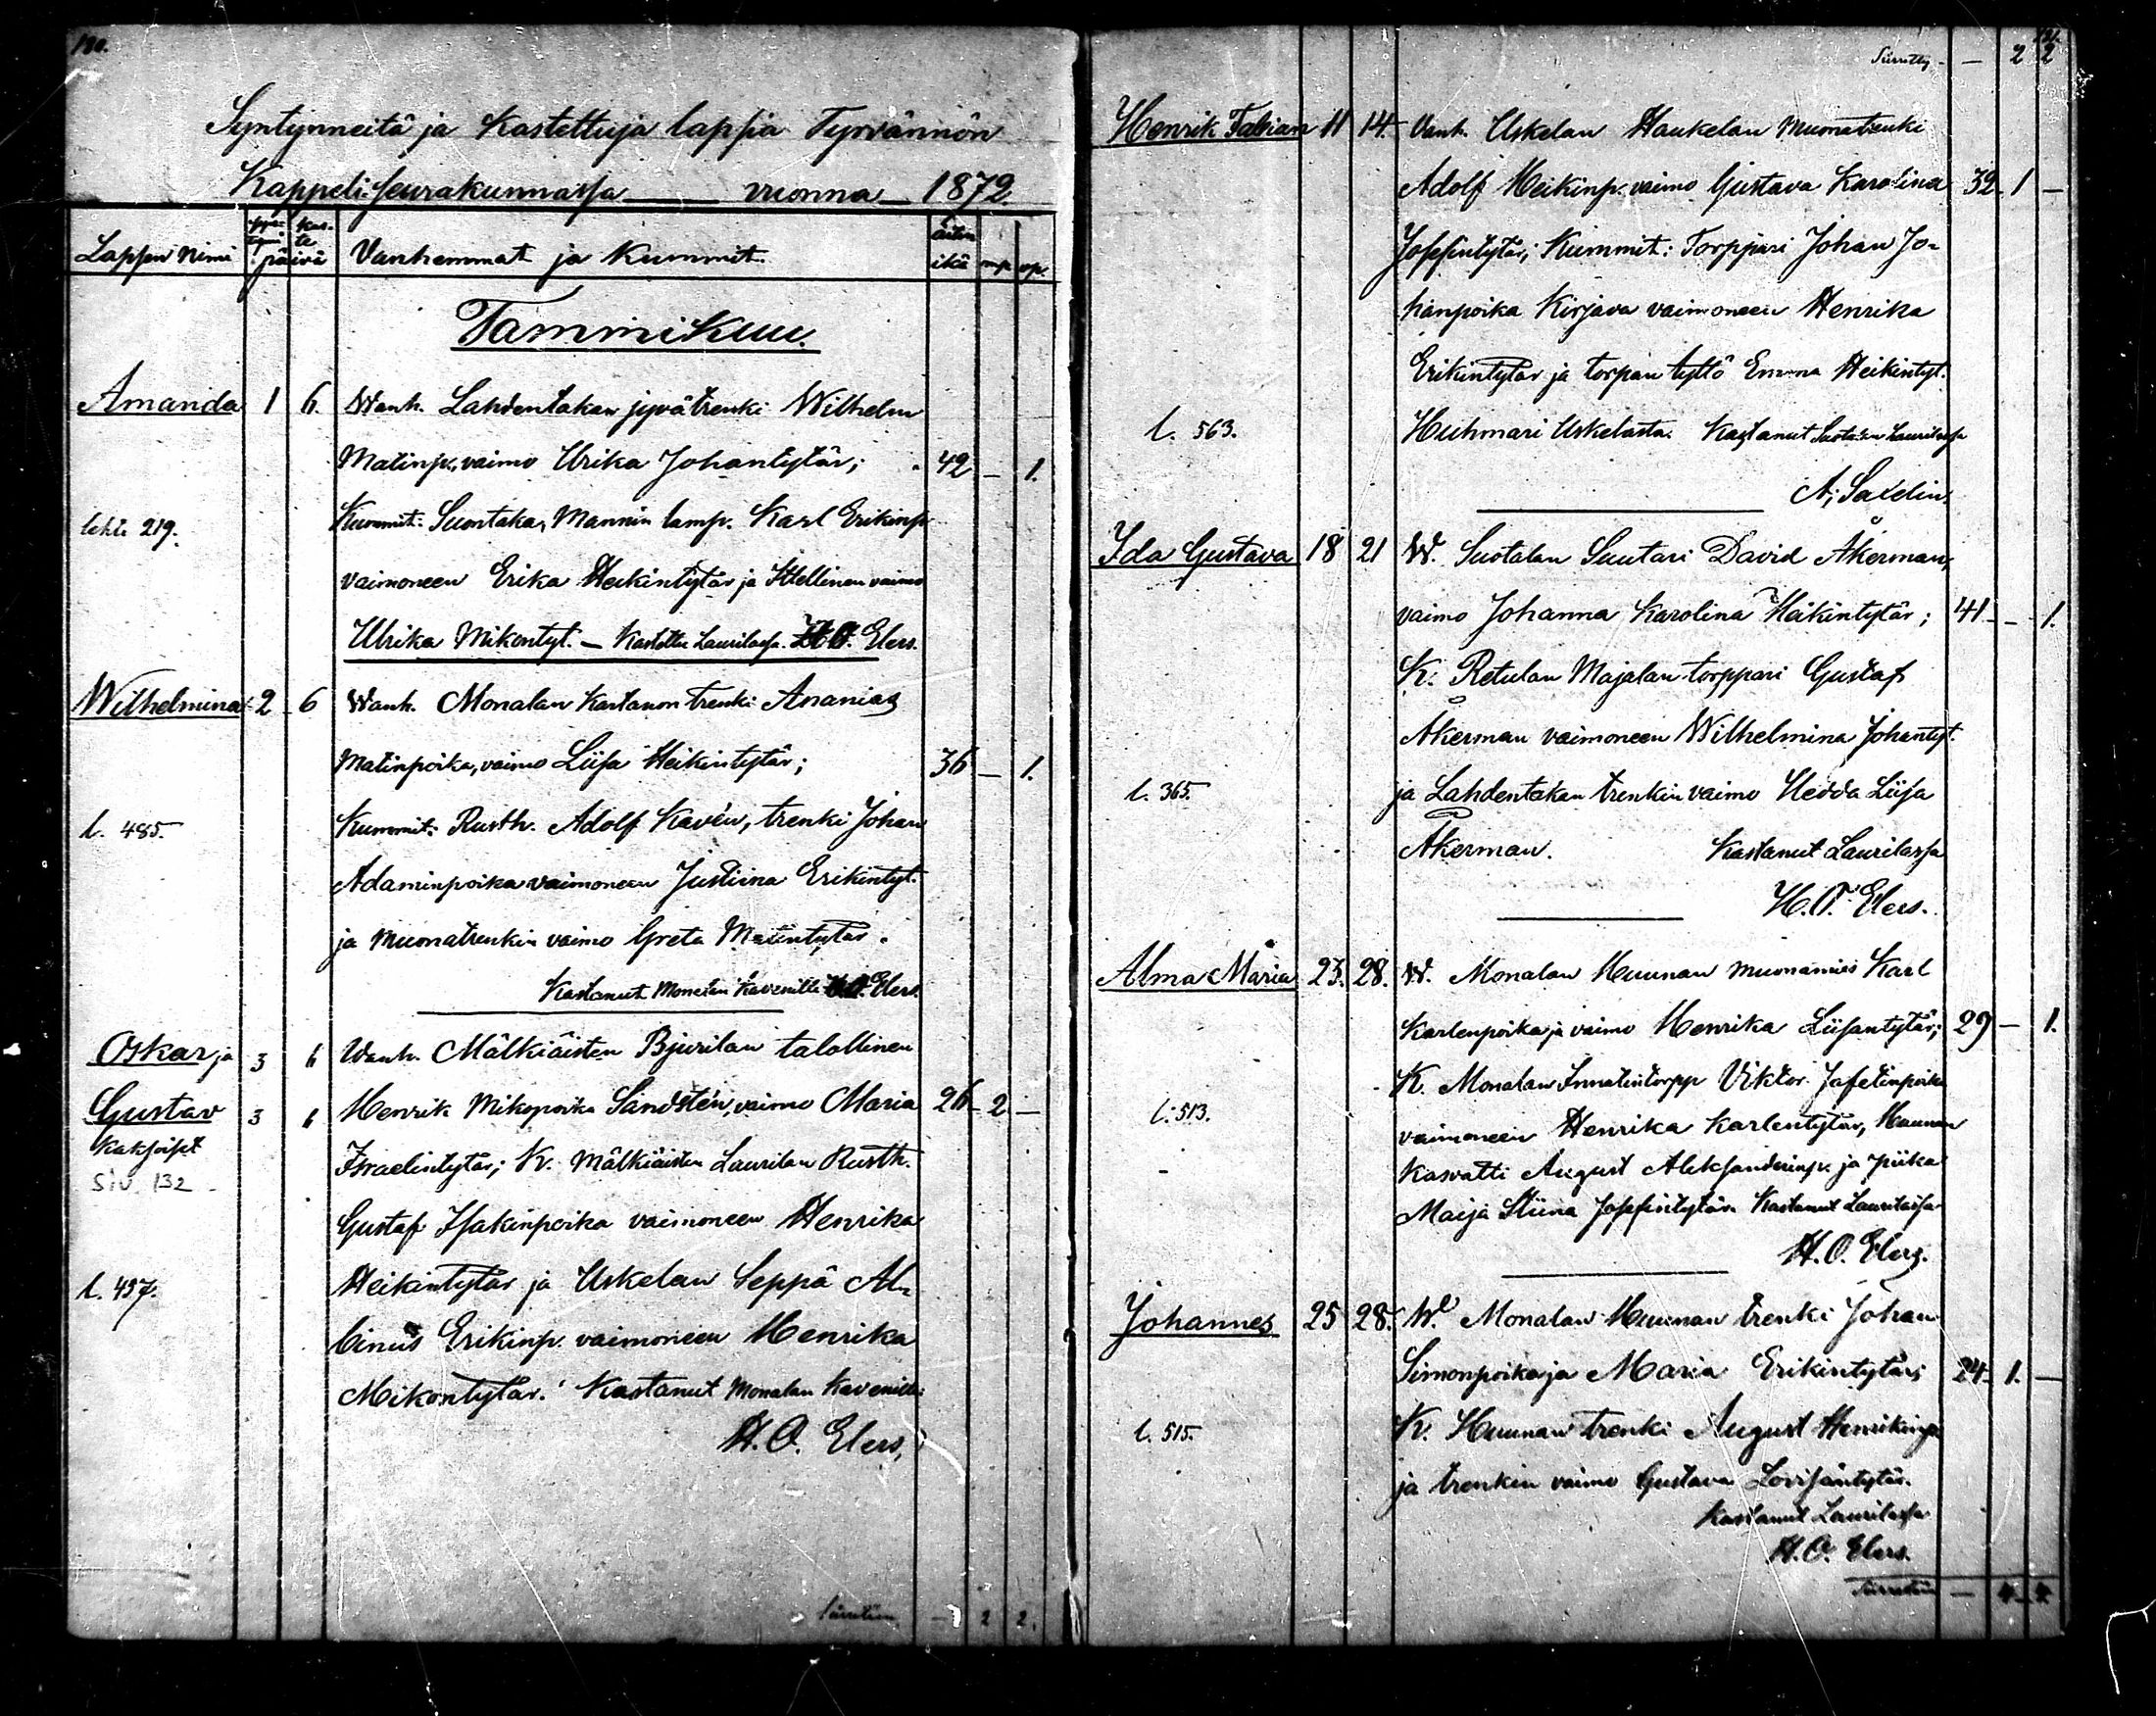 130.
Syntyneitä ja Kastettuja lapsia Tyrvännön
Kappeli seurakunnassa vuonna 1872
Lapsen Nimi synt. kaste päivä Vanhemmat ja Kummit. äitin ikä mp. vp.
Tammikuu.
Amanda 1 6. Wanh. Lahdentakan jyvätrenki Wilhelm
Matinp., vaimo Ulrika Johantytär; 42 – 1.
lehti 219. Kummit: Suontaka, Mannin lamp. Karl Erikinp.
vaimoneen Erika Heikintytär ja Itellinen vaimo
Ulrika Mikontyt. – Kastettu Laurilassa. H.O. Elers.
Wilhelmina 2 6 Wanh. Monalan Kartanon trenki Ananias
Matinpoika, vaimo Liisa Heikintytär; 36 – 1.
l. 485. Kummit: Rusth. Adolf Kavén, trenki Johan
Adaminpoika vaimoneen Justiina Erikintyt.
ja muonatrenkin vaimo Greta Matintytär.
Kastanut Monalan Kavenilla H.O. Elers.
Oskar ja 3 6 Wanh. Mälkiäisten Bjurilan talollinen
Gustav 3 6 Henrik Mikonpoika Sandstén, vaimo Maria 26 – 2 –
Kaksoiset
Israelintytär; K. Mälkiäisten Laurilan Rusth.
siv. 132
Gustaf Isakinpoika vaimoneen Henrika
l. 457. Heikintytär ja Uskelan Seppä Al-
binus Erikinp. vaimoneen Henrika
Mikontytär. Kastanut Monalan Kavenilla
H.O. Elers,
Siirretään – 2 2.
131.
Siirretty – – 2 2
Henrik Fabian 11 14. Vanh. Uskelan Haukelan Muonatrenki
Adolf Heikinp. vaimo Gustava Karolina 32 – 1 –
Josefintytär; Kummit: Torppari Johan Jo-
hanpoika Kirjava vaimoneen Henrika
Erikintytär ja torpan tyttö Emma Heikintyt.
l. 563. Huhmari Uskelasta. Kastanut Suotalan Laurilassa
A. Saxelin.
Ida Gustava 18 21 W. Suotalan Suutari David Åkerman,
vaimo Johanna Karolina Heikintytär; 41 – – 1.
K. Retulan Majalan torppari Gustaf
Åkerman vaimoneen Wilhelmina Johantyt.
l. 365. ja Lahdentakan trenkin vaimo Hedda Liisa
Åkerman. Kastanut Laurilassa
H.O. Elers.
Alma Maria 23. 28. W. Monalan Huunan muonamies Karl
Karlenpoika ja vaimo Henrika Liisantytär; 29 – 1.
K. Monalan Innatintorpp Viktor Jafetinpoika
l. 513. vaimoneen Henrika Karlentytär, Huunan
Kasvatti August Aleksanderinp. ja piika
Maija Stiina Josefintytär. Kastanut Laurilassa
H.O. Elers.
Johannes 25 28. W. Monalan Huunan trenki Johan
Simonpoika ja Maria Erikintytär; 24 – 1. –
l. 515. K. Huunan trenki August Henrikinp.
ja trenkin vaimo Gustava Lovisantytär.
Kastanut Laurilassa
H.O. Elers.
Siirretään – 4 – 4.